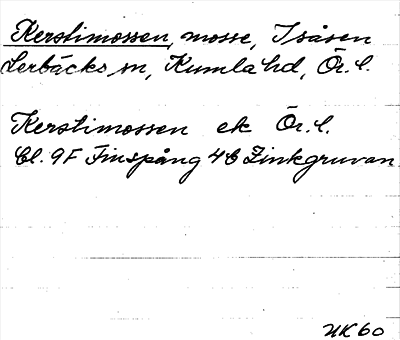 Kerstimossen, mosse, Isåsen
Lerbäcks sn, Kumla hd, Ör. l.
Kerstimossen ek Ör. l.
Bl. 9F Finspång 4b Zinkgruvan
UK60